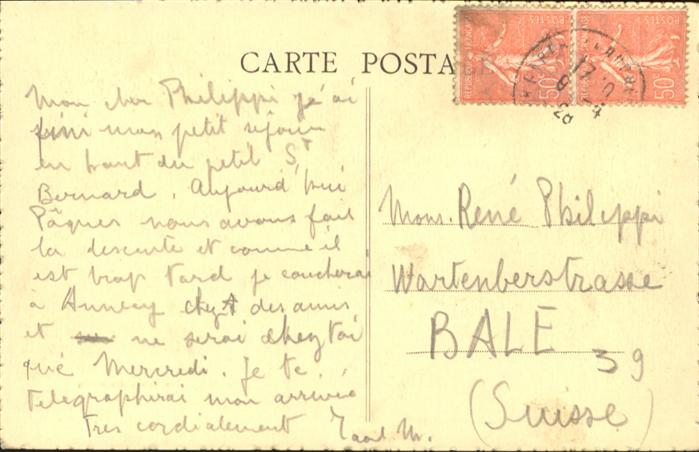 CARTE POSTALE
Mon cher Philippi j'ai
fini mon petit séjour
en haut du petit St
Bernard. Aujourd'hui
Pâques nous avons fait
la descente et comme il
est trop tard je coucherai
à Annecy chez des amis
et ne serai chez toi
que Mercredi. Je te
telegraphirai mon arrivée
Très cordialement
Mons. René Philippi
Wartenberstrasse
BALE 39
(Suisse)
50
50